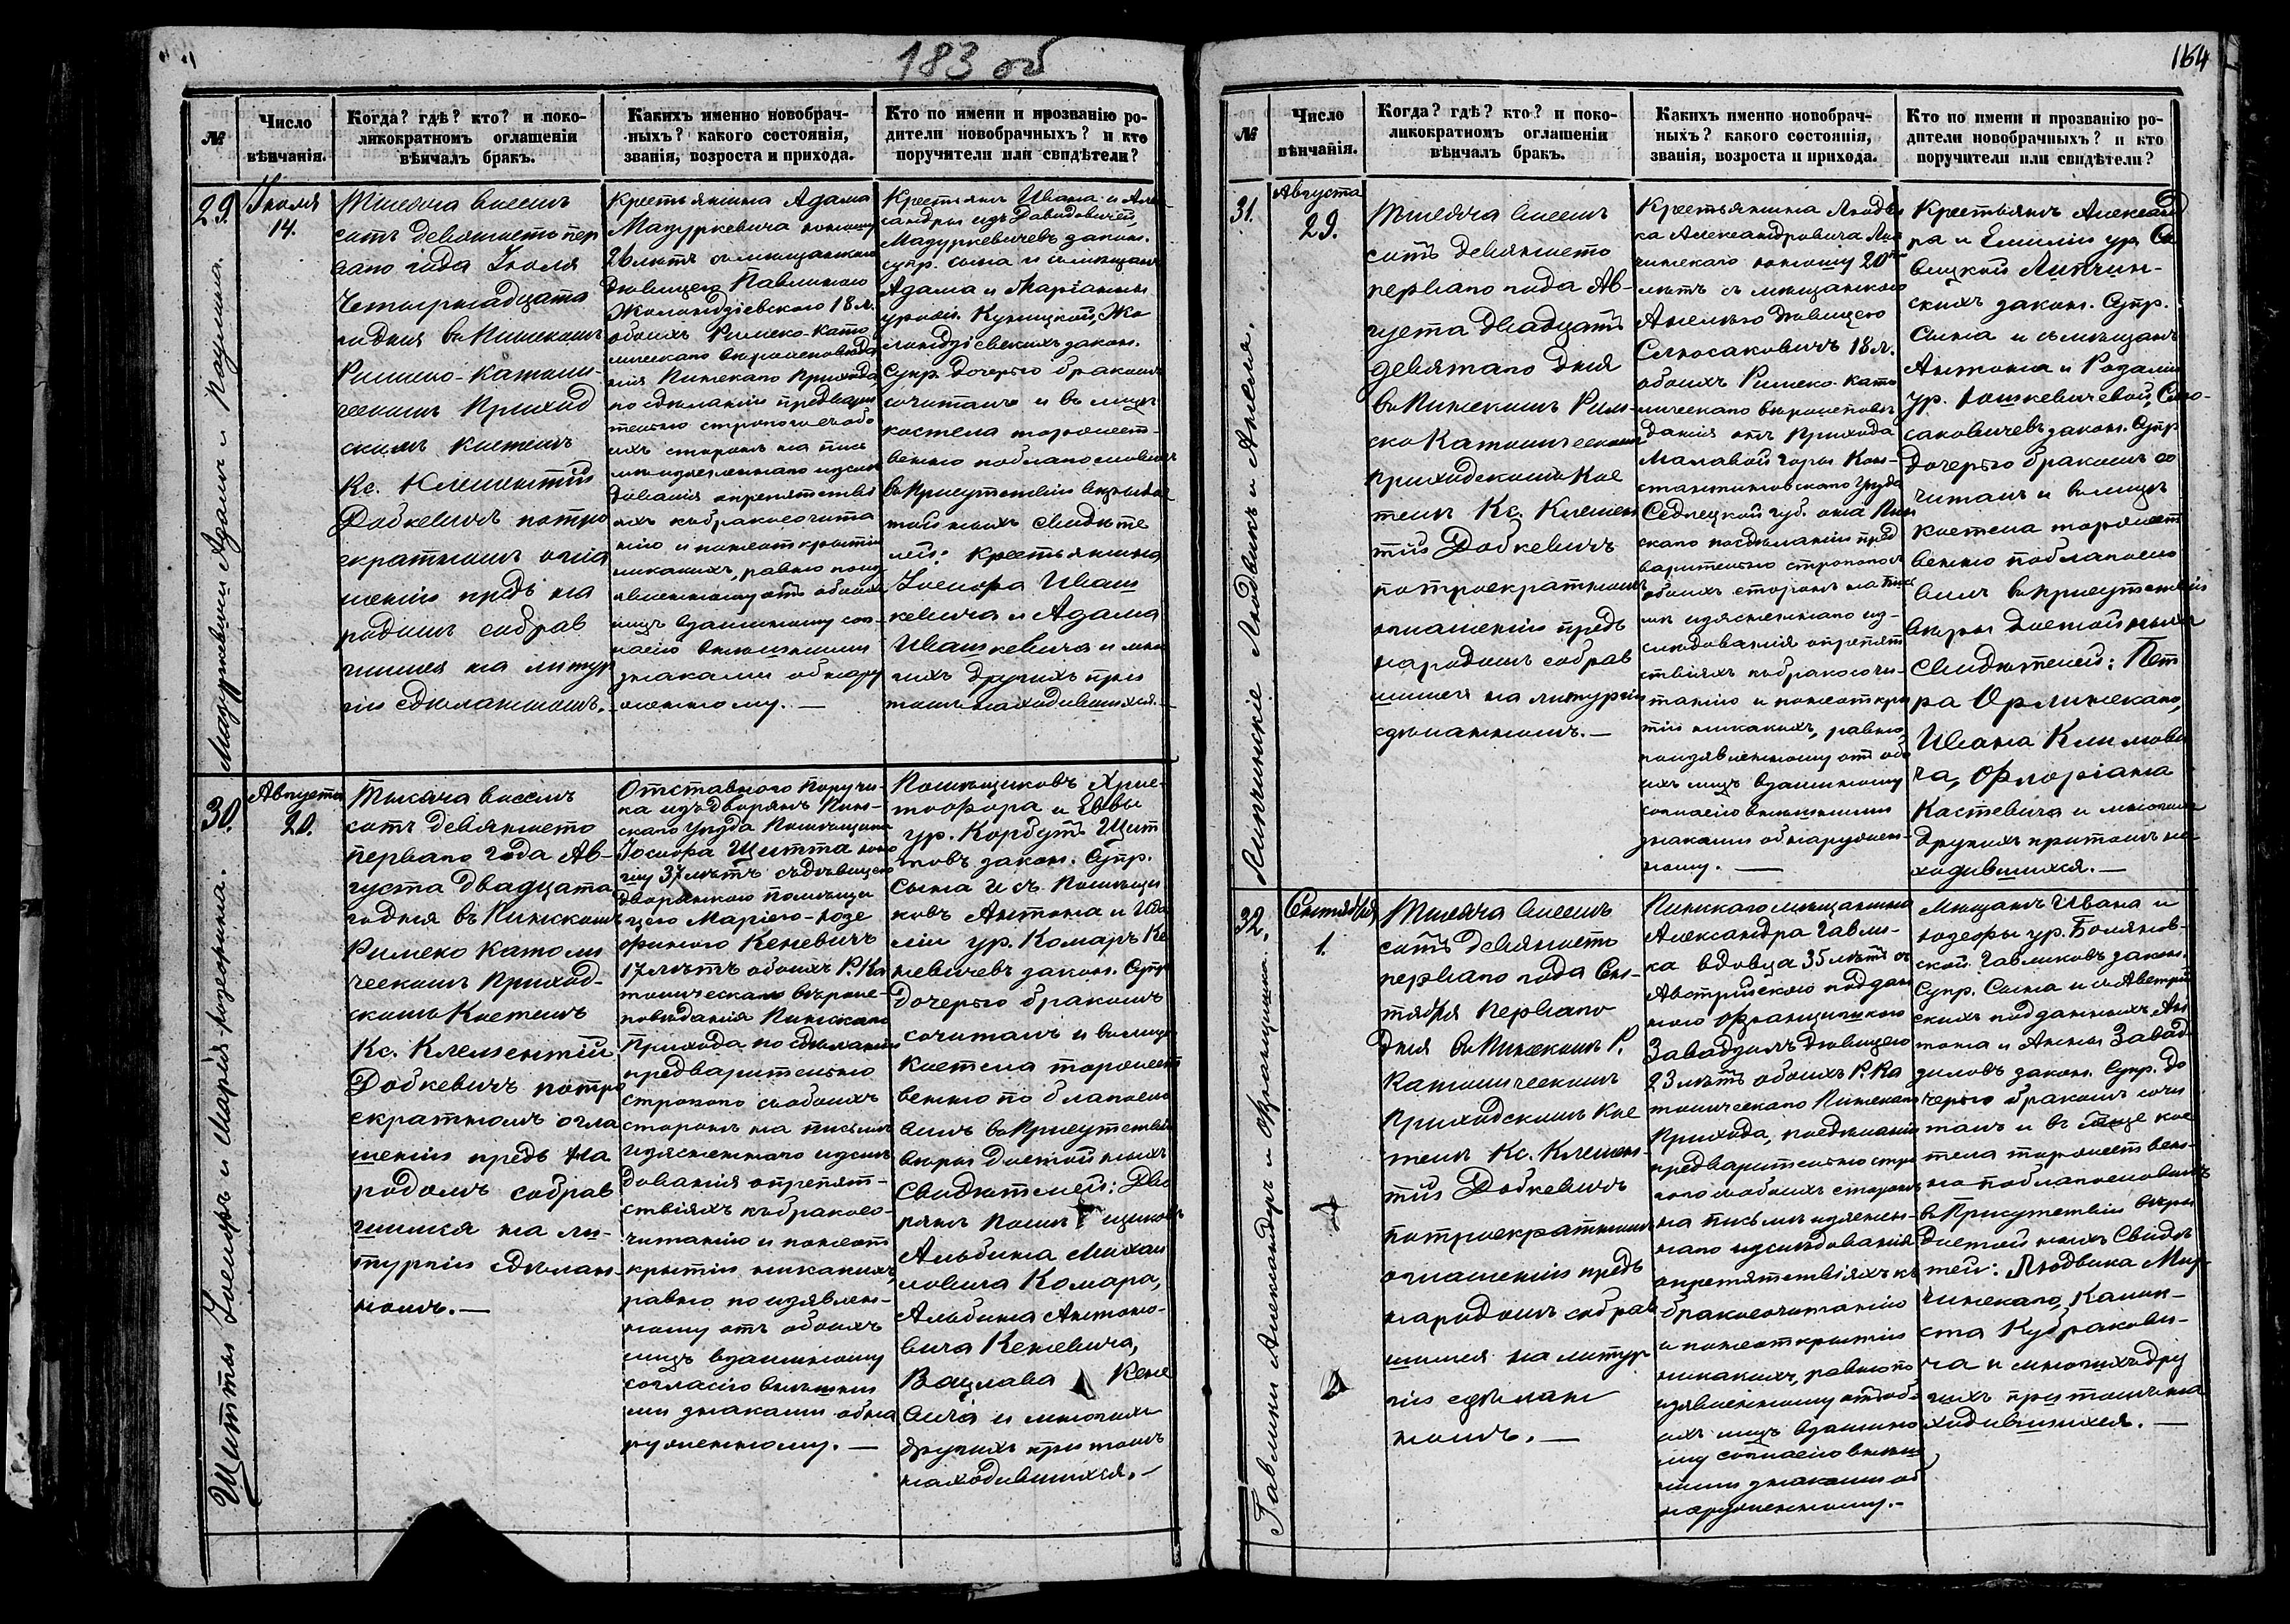 183 об
№
Число
вѣнчанія.
Когда? гдѣ? кто? и поко-
ликократномъ оглашеніи
вѣнчалъ бракъ.
Какихъ именно новобрач-
ныхъ? какого состоянія,
званія, возроста и прихода.
Кто по имени и прозванію ро-
дители новобрачныхъ? и кто
поручители или свидѣтели?
29.
Мазуркевичи Адамъ и Паулина.
Іюля
14.
Тысяча восемь
сотъ девяносто пер
ваго года Іюля
Четырнадцата
го дня въ Пинскомъ
Римско-Католи-
ческомъ Приход
скомъ костелѣ
Кс. Клементій
Добкевичъ по трое
кратномъ огла
шеніи предъ на
родомъ собрав
шимся на литур
гіи сдѣланномъ.
Крестьянина Адама
Мазуркевича юношу
26 лѣтъ съ мѣщанкою
дѣвицею Павлиною
Жолондзіевскою 18 л.
обоихъ Римско-като
лическаго вѣроисповѣда
нія Пинскаго Прихода
по сдѣланіи предвари
тельно строгого съ обо
ихъ сторонъ на пись
мѣ изъясненнаго изслѣ
дованія о препятстві
яхъ къ бракосочета
нію и по неоткрытіи
никакихъ, равно по изъ
явленному отъ обоихъ
лицъ взаимному сог
ласію внѣшними
знаками обнару
женному. —
Крестьянъ Ивана и Алек
сандры изъ Давидовичей,
Мазуркевичевъ закон.
супр. сына и съ мѣщанъ
Адама и Маріанны
урожд. Куницкой, Жо
лондзіевскихъ закон.
Супр. Дочерью бракомъ
сочиталъ и въ лицѣ
костела торжест-
венно поблагословилъ
въ присутствіи вѣры дос
тойныхъ свидѣте
лей: крестьянина
Іосифа Иваш
кевича и Адама
Ивашкевича и мно
гихъ другихъ при
томъ находившихся. —
30.
Щитты Іосифъ и Марія-Іозефина.
Августа
20.
Тысяча восемь
сотъ девяносто
перваго года Ав-
густа двадцата
го дня въ Пинскомъ
Римско католи
ческомъ Приход-
скомъ Костелѣ
Кс. Клементій
Добкевичъ по трое
скратномъ огла
шеніи предъ на
родомъ собрав
шимся на ли-
тургіи сдѣлан-
номъ. —
Отставного Поручи-
ка изъ дворянъ Пин-
скаго уѣзда Помѣщика
Іосифа Щитта юно
шу 37 лѣтъ съ дѣвицею
дворянкою помѣщи
цею Маріею-Іозе
финою Кеневичъ
17 лѣтъ обоихъ Р. Ка
толическаго вѣроис-
повѣданія Пинскаго
Прихода по сдѣланіи
предварительно
строгого съ обоихъ
сторонъ на письмѣ
изъясненного изслѣ
дованія о препят-
ствіяхъ къ бракосо-
читанію и по неот
крытіи никакихъ,
равно по изъявлен-
ному отъ обоихъ
лицъ взаимному
согласію внѣшни
ми знаками обна
руженному. —
Помѣщиковъ Хрис-
тофора и Еввы
ур. Корбутъ Щит
товъ закон. Супр.
Сына и съ Помѣщи
ковъ Антона и Ида
ліи ур. Комаръ Ке
невичевъ закон. Супр
Дочерью бракомъ
сочиталъ и въ лицѣ
Костела торжест
венно поблагосло
вилъ въ присутствіи
вѣры достойныхъ
Свидѣтелей: Дво
рянъ помѣщиковъ
Альбина Михаи
ловича Комара,
Альбина Антоно-
вича Кеневича,
Вацлава Кене
вича и многихъ
другихъ притомъ
находившихся. —
164
№
Число
вѣнчанія.
Когда? гдѣ? кто? и поко-
ликократномъ оглашеніи
вѣнчалъ бракъ.
Какихъ именно новобрач-
ныхъ? какого состоянія,
званія, возроста и прихода.
Кто по имени и прозванію ро-
дители новобрачныхъ? и кто
поручители или свидѣтели?
31.
Липчинскіе Людвикъ и Анеля.
Августа
29.
Тысяча восемь
сотъ девяносто
перваго года Ав-
густа двадцать
девятаго дня
въ Пинскомъ Рим-
ско Католическомъ
приходскомъ Кос
телѣ Кс. Клемен
тій Добкевичъ
по троекратномъ
оглашеніи предъ
народомъ собрав
шимся на литургіи
сдѣланномъ. —
Крестьянина Людви
ка Александровича Лип
чинскаго юношу 20
лѣтъ съ мѣщанкою
Анелею дѣвицею
Слюсаковичъ 18 л.
обоихъ Римско-като
лическаго вѣроисповѣ
данія онъ Прихода
Малавой горы Кон-
стантиновскаго уѣзда
Седлецкой губ. она Пин
скаго по сдѣланіи пред
варительно строгого съ
обоихъ сторонъ на пись
мѣ изъясненнаго из-
слѣдованія о препят
ствіяхъ къ бракосочи-
танію и по неоткры
тіи никакихъ, равно
по изъявленному отъ обо
ихъ лицъ взаимному
согласію внѣшними
знаками обнаружен-
ному. —
Крестьянъ Александ
ра и Емиліи ур. Са
вицкой Липчин-
скихъ закон. Супр.
Сына и съ мѣщанъ
Антона и Розаліи
ур. Юшкевичевой, Слю-
саковичевъ закон. Супр
Дочерью бракомъ со
читалъ и въ лицѣ
костела торжест
венно поблагосло
вилъ въ присутствіи
вѣры достойныхъ
Свидѣтелей: Пет
ра Орлинскаго,
Ивана Климови
ча, Флоріана
Кастевича и многихъ
другихъ притомъ на-
ходившихся. —
32.
Гавлики Александръ и Францишка.
Сентября
1.
Тысяча восемь
сотъ девяносто
перваго года Сен-
тября перваго
дня въ Пинскомъ Р.
Католическомъ
Приходскомъ Кос
телѣ Кс. Клемен-
тій Добкевичъ
по троекратномъ
оглашеніи предъ
народомъ собрав
шимся на литур
гіи сдѣлан
номъ. —
Пинскаго мѣщанина
Александра Гавли-
ка вдовца 35 лѣтъ съ
Австрійскою поддан
ною Францишкою
Завадзилъ дѣвицею
23 лѣтъ обоихъ Р. Ка
толическаго Пинскаго
Прихода, по сдѣланіи
предварительно стро
гого съ обоихъ сторонъ
на письмѣ изъяснен-
наго изслѣдованія
о препятствіяхъ къ
бракосочитанію
и по неоткрытіи
никакихъ, равно по
изъявленному отъ обо-
ихъ лицъ взаимно
му согласію внѣш
ними знаками об
наруженному. —
Мѣщанъ Ивана и
Іозефы ур. Болянов-
ской Гавликовъ закон.
Супр. Сына и съ Австрій
скихъ подданныхъ Ан
тона и Анны Завад
зиловъ закон. Супр. До
черью бракомъ сочи
талъ и въ лице кос
тела торжествен-
но поблагословилъ
въ Присутствіи вѣры
достойныхъ Свидѣ
телей: Людвика Мар
чинскаго, Калик-
ста Кубракови-
ча и многихъ дру
гихъ притомъ на
ходившихся. —